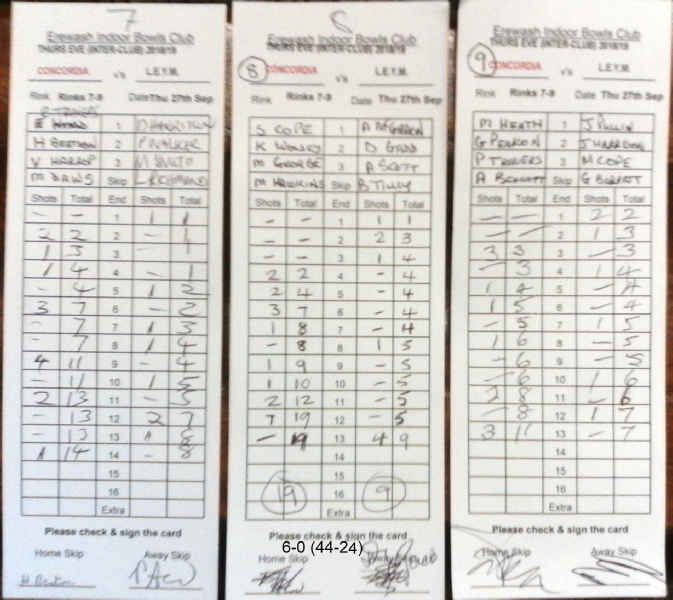 7
Erewash Indoor Bowls Club
THURS EVE (INTER-CLUB) 2018/19
CONCORDIA v's L.E.Y.M.
Rink Rinks 7-9 Date Thu 27th Sep
1
H 2 P WALKER
V HARROP 3 M
M DAWS Skip L RICHMOND
Shots Total End Shots Total
- - 1 1 1
2 2 2 - 1
1 3 3 - 1
1 4 4 - 1
- 4 5 1 2
3 7 6 - 2
- 7 7 1 3
- 7 8 1 4
4 11 9 - 4
- 11 10 1 5
2 13 11 - 5
- 13 12 2 7
- 13 13 1 8
1 14 14 - 8
15
16
Extra
Please check & sign the card
Home Skip Away Skip
8
Erewash Indoor Bowls Club
THURS EVE (INTER-CLUB) 2018/19
8 CONCORDIA v's L.E.Y.M.
Rink Rinks 7-9 Date Thu 27th Sep
S COPE 1 A
K WOLLEY 2 D
M GEORGE 3 A SCOTT
M HAWKINS Skip B TILLY
Shots Total End Shots Total
- - 1 1 1
- - 2 2 3
- - 3 1 4
2 2 4 - 4
2 4 5 - 4
3 7 6 - 4
1 8 7 - 4
- 8 8 1 5
1 9 9 - 5
1 10 10 - 5
2 12 11 - 5
7 19 12 - 5
- 19 13 4 9
14
15
19 16 9
Extra
Please check & sign the card
6-0 (44-24)
Home Skip Away Skip
9
Erewash Indoor Bowls Club
THURS EVE (INTER-CLUB) 2018/19
CONCORDIA v's L.E.Y.M.
Rink Rinks 7-9 Date Thu 27th Sep
M HEATH 1 J PULLIN
G PEARSON 2 J HARRISON
P TRAVERS 3 M COPE
A BENNETT Skip G BURTT
Shots Total End Shots Total
- - 1 2 2
- - 2 1 3
3 3 3 - 3
- 3 4 1 4
1 4 5 - 4
1 5 6 - 4
- 5 7 1 5
1 6 8 - 5
- 6 9 - 5
- 6 10 1 6
2 8 11 - 6
- 8 12 1 7
3 11 13 - 7
14
15
16
Extra
Please check & sign the card
Home Skip Away Skip